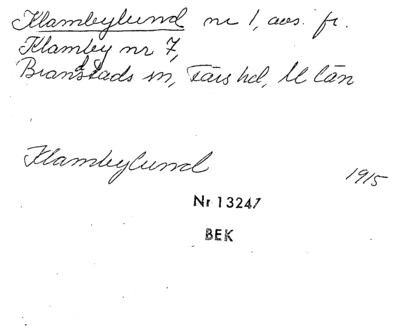 Klambylund nr 1, avs. fr.
Klamby nr 7,
Branstads sn, Färs hd, M län
Klambylund 1915
Nr 13247
BEK